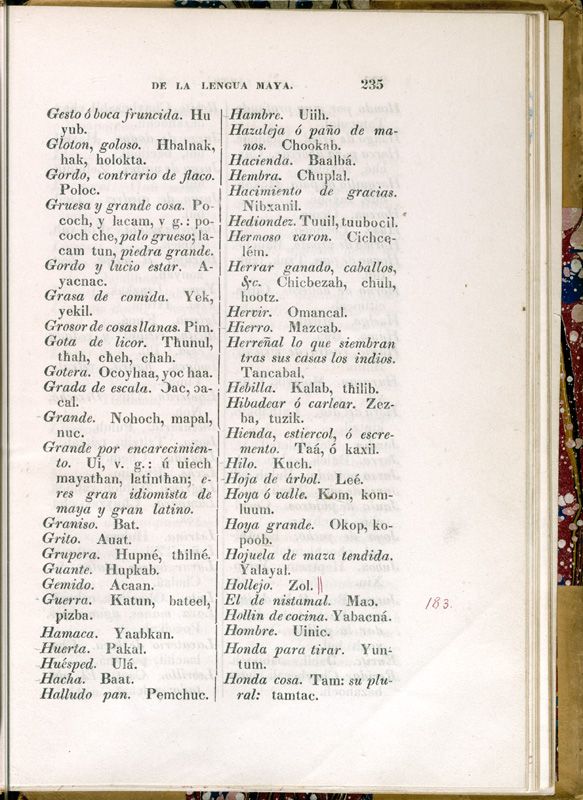 DE LA LENGUA MAYA. 235
Gesto ó boca fruncida. Hu
yub.
Gloton, goloso. Hbalnak,
hak, holokta.
Gordo, contrario de flaco.
Poloc.
Gruesa y grande cosa. Po-
coch, y lacam, v g.: po-
coch che, palo grueso; la-
cam tun, piedra grande.
Gordo y lucio estar. A-
yacnac.
Grasa de comida. Yek,
yekil.
Grosor de cosas llanas. Pim.
Gota de licor. Thunul,
thah, cheh, chah.
Gotera. Ocoyhaa, yoc haa.
Grada de escala. Ɔac, ɔa-
cal.
Grande. Nohoch, mapal,
nuc.
Grande por encarecimien-
to. Ui, v. g.: ú uiech
mayathan, latinthan; e-
res gran idiomista de
maya y gran latino.
Graniso. Bat.
Grito. Auat.
Grupera. Hupné, thilné.
Guante. Hupkab.
Gemido. Acaan.
Guerra. Katun, bateel,
pizba.
Hamaca. Yaabkan.
Huerta. Pakal.
Huésped. Ulá.
Hacha. Baat.
Halludo pan. Pemchuc.
Hambre. Uiih.
Hazaleja ó paño de ma-
nos. Chookab.
Hacienda. Baalbá.
Hembra. Chuplal.
Hacimiento de gracias.
Nibxanil.
Hediondez. Tuuil, tuubocil.
Hermoso varon. Cichce-
lém.
Herrar ganado, caballos,
&c. Chicbezah, chuh,
hootz.
Hervir. Omancal.
Hierro. Mazcab.
Herreñal lo que siembran
tras sus casas los indios.
Tancabal.
Hebilla. Kalab, thilib.
Hibadear ó carlear. Zez-
ba, tuzik.
Hienda, estiercol, ó escre-
mento. Taá, ó kaxil.
Hilo. Kuch.
Hoja de árbol. Leé.
Hoya ó valle. Kom, kom-
luum.
Hoya grande. Okop, ko-
poob.
Hojuela de maza tendida.
Yalayal.
Hollejo. Zol.
El de nistamal. Maɔ. 183.
Hollin de cocina. Yabacná.
Hombre. Uinic.
Honda para tirar. Yun-
tum.
Honda cosa. Tam: su plu-
ral: tamtac.